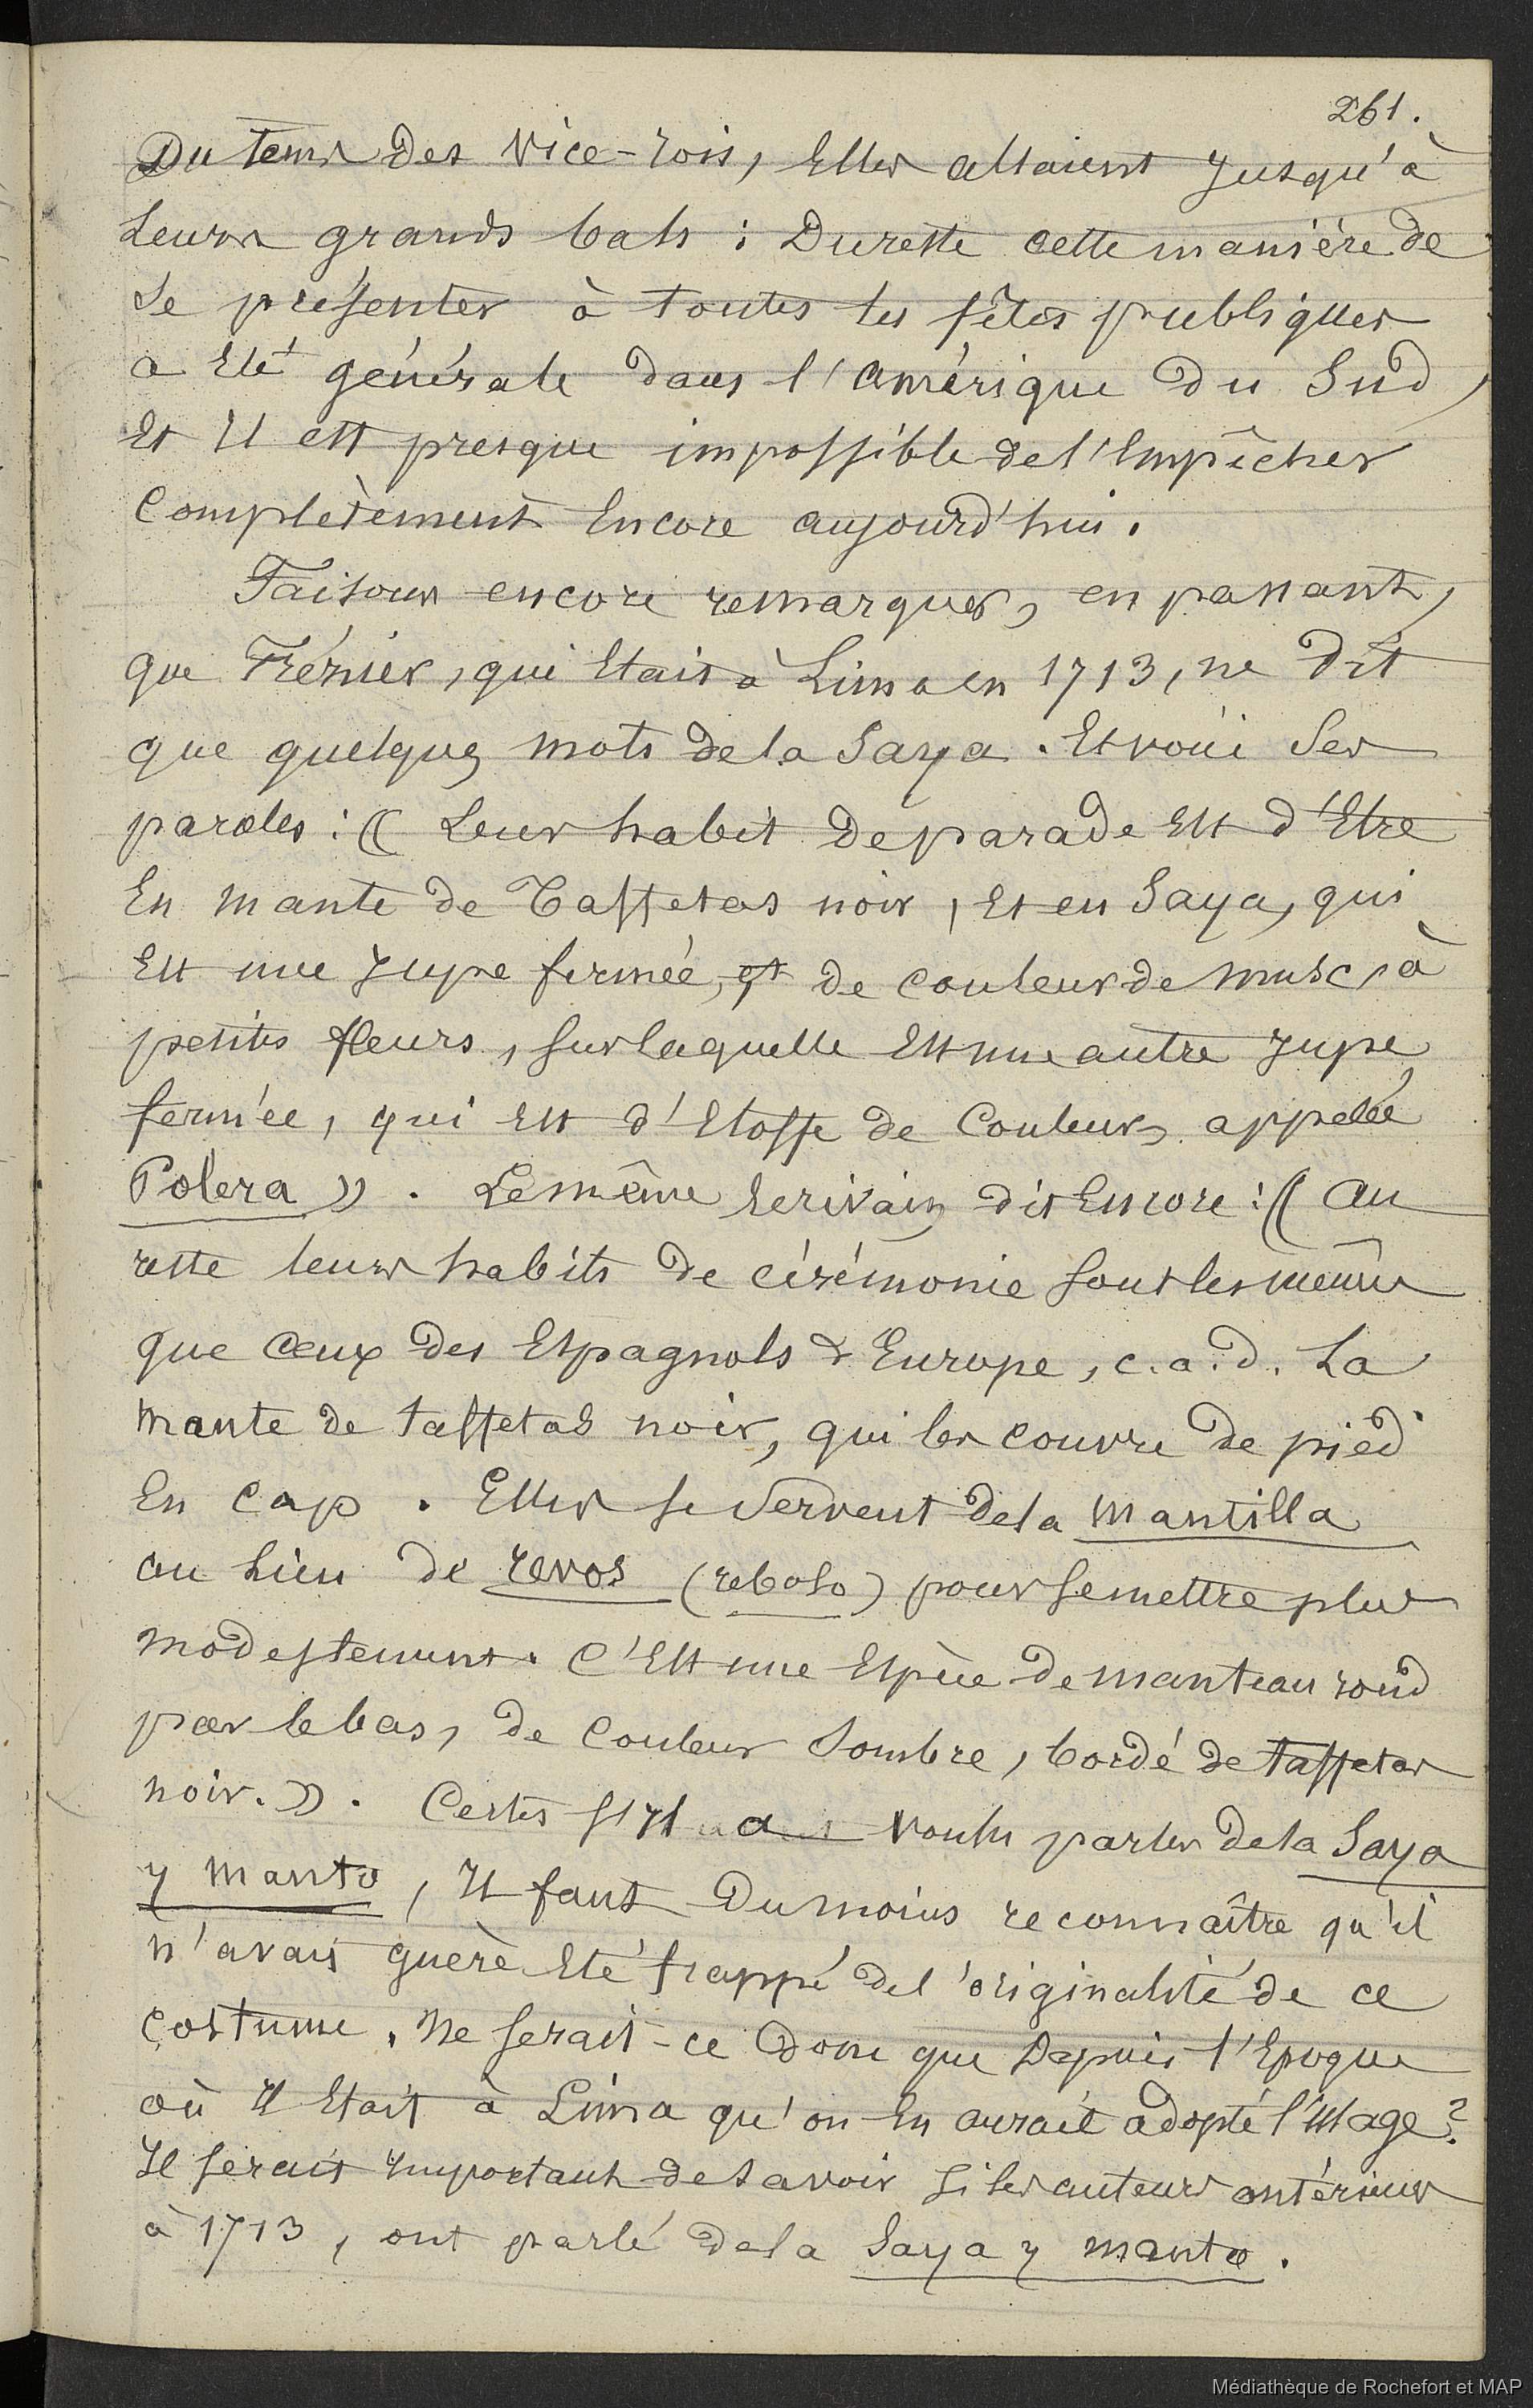 261.
Du tems des vice-rois, elles allaient jusqu'à
leurs grands bals : Dureste cette manière de
se présenter à toutes les fêtes publiques
a été générale dans l'amérique du Sud,
et il est presque impossible de l'empêcher
complètement encore aujourd'hui.
Faisons encore remarquer, en passant,
que Frézier, qui était à Lima en 1713, ne dit
que quelques mots de la Saya. Et voici ses
paroles : (( Leur habit de parade est d'être
en mante de Taffetas noir, et en Saya, qui
est une jupe fermée, et de couleur de musc, à
petites fleurs, sur laquelle est une autre jupe
fermée, qui est d'étoffe de couleur, appelée
Polera )). Le même écrivain dit encore : (( au
reste leurs habits de cérémonie sont les mêmes
que ceux des Espagnols d'Europe, c.a.d. La
mante de taffetas noir, qui les couvre de pied
en cap. Elles se servent de la mantilla
au lieu de revos (reboso) pour se mettre plus
modestement. C'est une espèce de manteau rond
par le bas, de couleur sombre, bordé de taffetas
noir. )). Certes s'il a voulu parler de la Saya
y manto, il faut du moins reconnaître qu'il
n'avait guère été frappé de l'originalité de ce
costume. Ne serait-ce donc que depuis l'époque
où il était à Lima qu'on en aurait adopté l'usage ?
Il serait important de savoir si les auteurs antérieurs
à 1713, ont parlé de la Saya y manto.
Médiathèque de Rochefort et MAP